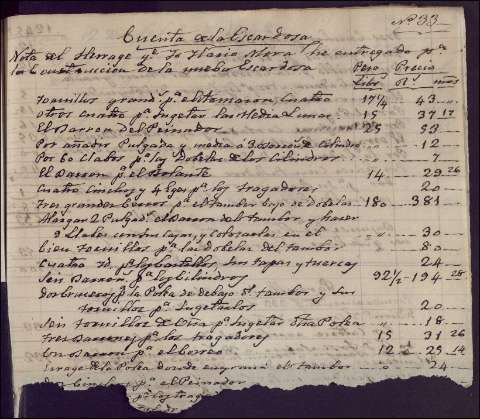 Nº 33
Cuenta de la Escardosa
Nota del Herrage qe Yo Ilario Mora he entregado pa
la Construccion de la nueba Escardosa Peso Precio
Libs Rs mrs
Tornillos grands pa el tamaron, Cuatro 17¼ 43
Otros cuatro pa Sugetar las Media Lunas 15 37 17
El Barron del Peinador 25 53
Por añadir Pulgada y media á 3 de Cilindro 12
Por 60 Clabos pa las Dobelas de los Cilindros 7
El Barron pa el 14 29 26
Cuatro Cinchos y 4 pa los tragadores 20
Tres grandes pa el tambor bajo de dobelas 180 381
Alargar 2 Pulgads el Barron del tambor y hacer
2 Llabes con sus y Colocarlas en el 30
Cien tornillos pa las dobelas del tambor 80
Cuatro Sus tapas y tuercas 24
Seis Barrons pa los Cilindros 92½ 194 28
Dos pa la Polea de debajo del tambor y sus
tornillos pa Sugetarlos 20
Seis tornillos de pa Sugetar Otra Polea 18
Tres Barrones pa los tragadores 15 31 26
Un Barron pa el Correo 12 25 14
de la Polea donde el tambor 24
Dos Cinchos pa el Peinador
pa los